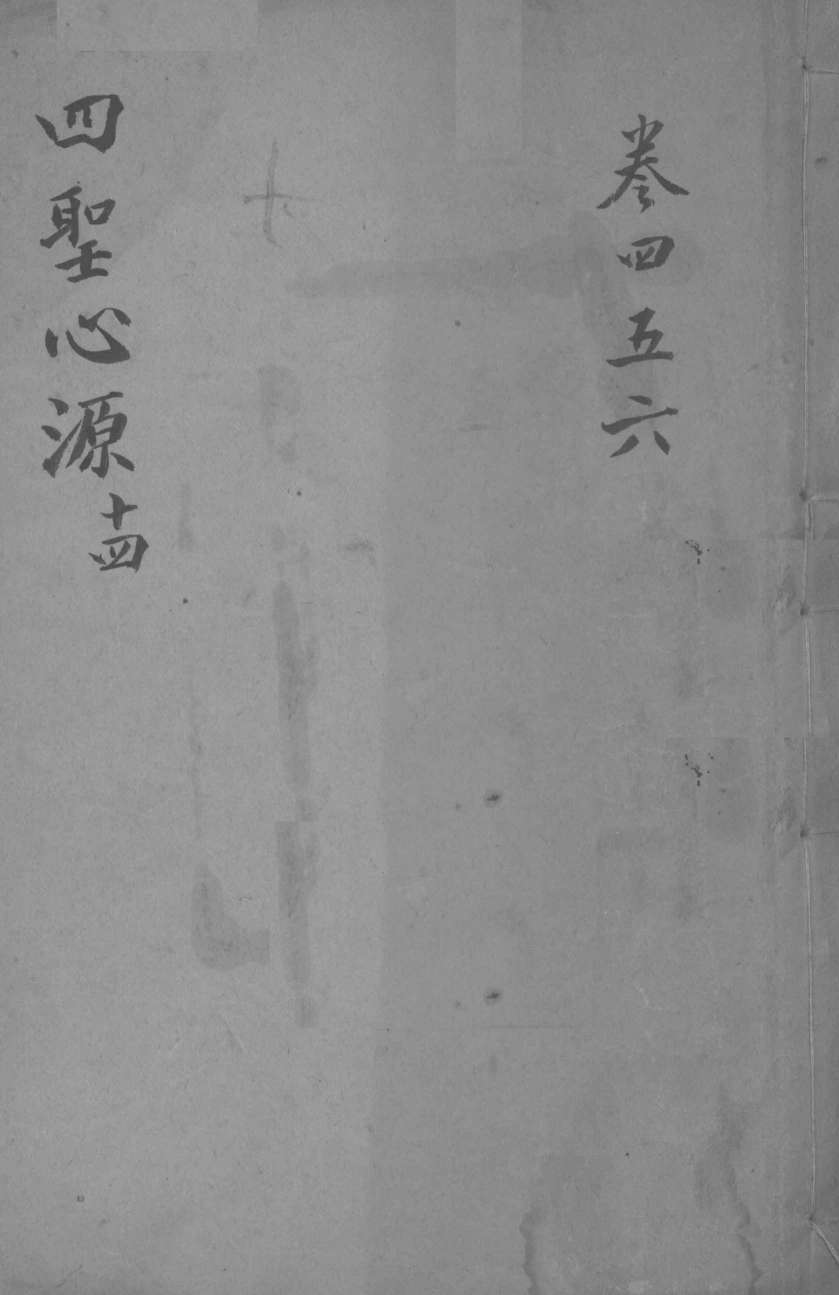 卷四五六
四聖心源十四